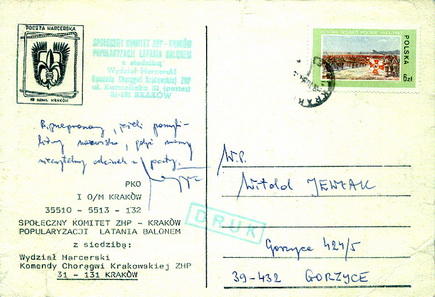 POCZTA HARCERSKA
KRAKÓW
SPOŁECZNY KOMITET ZHP - KRAKÓW
POPULARYZACJI LATANIA BALONEM
z siedzibą
Wydział Harcerski
Komendy Chorągwi Krakowskiej ZHP
31-131 KRAKÓW
POLSKA
6zł
B. przepraszam, jeśli pomyli-
nazwisko, gdyż mamy
nieczytelny odcinek z poczty.
PKO
I O/M KRAKÓW
35510 - 5513 - 132
SPOŁECZNY KOMITET ZHP - KRAKÓW
POPULARYZACJI LATANIA BALONEM
z siedzibą:
Wydział Harcerski
Komendy Chorągwi Krakowskiej ZHP
31 - 131 KRAKÓW
DRUK
W.P.
Witold
Gorzyce 424/5
39-432 GORZYCE